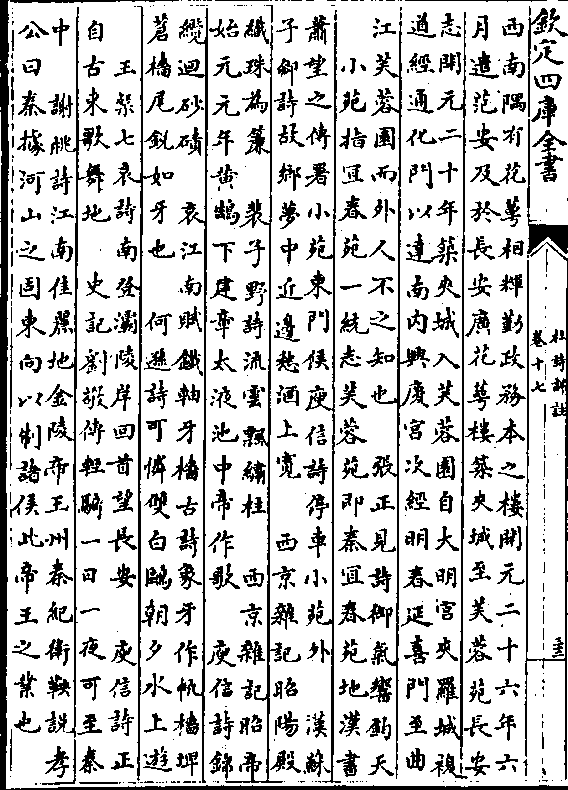 欽定四庫全書
杜詩詳註
卷十七
西南隅有花萼相輝勤政務本之樓開元二十六年六
月遣范安及於長安廣花萼樓築夾城至芙蓉苑長安
志開元二十年築夾城入芙蓉園自大明宮夾羅城複
道經通化門以達南內興慶宮次經明春延喜門至曲
江芙蓉園而外人不之知也　張正見詩御氣響鈞天
小苑指宜春苑一統志芙蓉苑即秦宜春苑地漢書
蕭望之傳署小苑東門候庾信詩停車小苑外　漢蘇
子卿詩故鄉夢中近邊愁酒上寬　西京雜記昭陽殿
織珠為簾　裴子野詩流雲飄繡柱　西京雜記昭帝
始元元年黃鵠下建章太液池中帝作歌　庾信詩錦
纜迴砂磧　哀江南賦鐵軸牙檣古詩象牙作帆檣埤
蒼檣尾銳如牙也　何遜詩可憐雙白鷗朝夕水上遊
王粲七哀詩南登灞陵岸回首望長安　庾信詩正
自古東歌舞地　史記劉敬傳輕騎一日一夜可至秦
中　謝朓詩江南佳麗地金陵帝王州秦紀衛鞅說孝
公曰秦據河山之固東向以制諸侯此帝王之業也